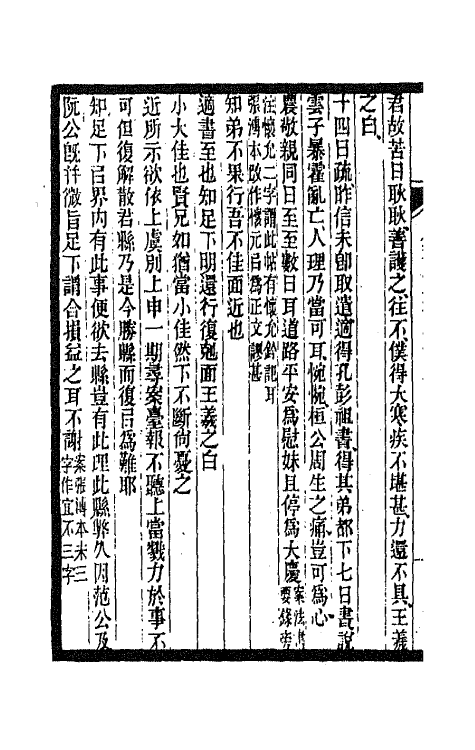 君故苦日耿耿善護之往不僕得大寒疾不堪甚力還不具王羲
之白
十四日疏昨信未卽取遣適得孔彭祖書得其弟都下七日書說
雲子暴霍亂亡人理乃當可耳惋惋桓公周生之痛豈可爲心
農敬親同日至至數日耳道路平安爲慰妹且停爲大慶案法書要錄旁
注懷允二字謂此帖有懷允鈐記耳
張溥本改作懷元㠯爲正文謬甚
知弟不果行吾不佳面近也
適書至也知足下明還行復剋面王羲之白
小大佳也賢兄如猶當小佳然下不斷尙憂之
近所示欲依上虞別上申一期尋案臺報不聽上當戮力於事不
可但復解散君縣乃是今勝縣而復㠯爲難耶
知足下㠯界内有此事便欲去縣豈有此理此縣弊久因范公及
阮公旣往微旨足下謂合損益之耳不謝案張溥本末三字作宜不三字